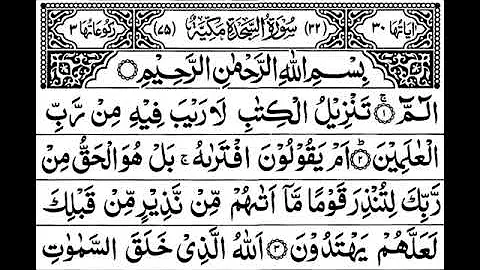 اٰيَاتُهَا ٣٠ (٣٢) سُوْرَةُ السَّجْدَةِ مَكِّيَّةٌ (٧٥) رُكُوْعَاتُهَا ٣
بِسْمِ اللّٰهِ الرَّحْمٰنِ الرَّحِيْمِ
الٓمّٓ ۚ‏ ﴿۱﴾ تَنْزِيْلُ الْكِتٰبِ لَا رَيْبَ فِيْهِ مِنْ رَّبِّ
الْعٰلَمِيْنَ ؕ‏ ﴿۲﴾ اَمْ يَقُوْلُوْنَ افْتَرٰىهُ ۚ بَلْ هُوَ الْحَقُّ مِنْ
رَّبِّكَ لِتُنْذِرَ قَوْمًا مَّاۤ اَتٰىهُمْ مِّنْ نَّذِيْرٍ مِّنْ قَبْلِكَ
لَعَلَّهُمْ يَهْتَدُوْنَ ﴿۳﴾ اَللّٰهُ الَّذِيْ خَلَقَ السَّمٰوٰتِ